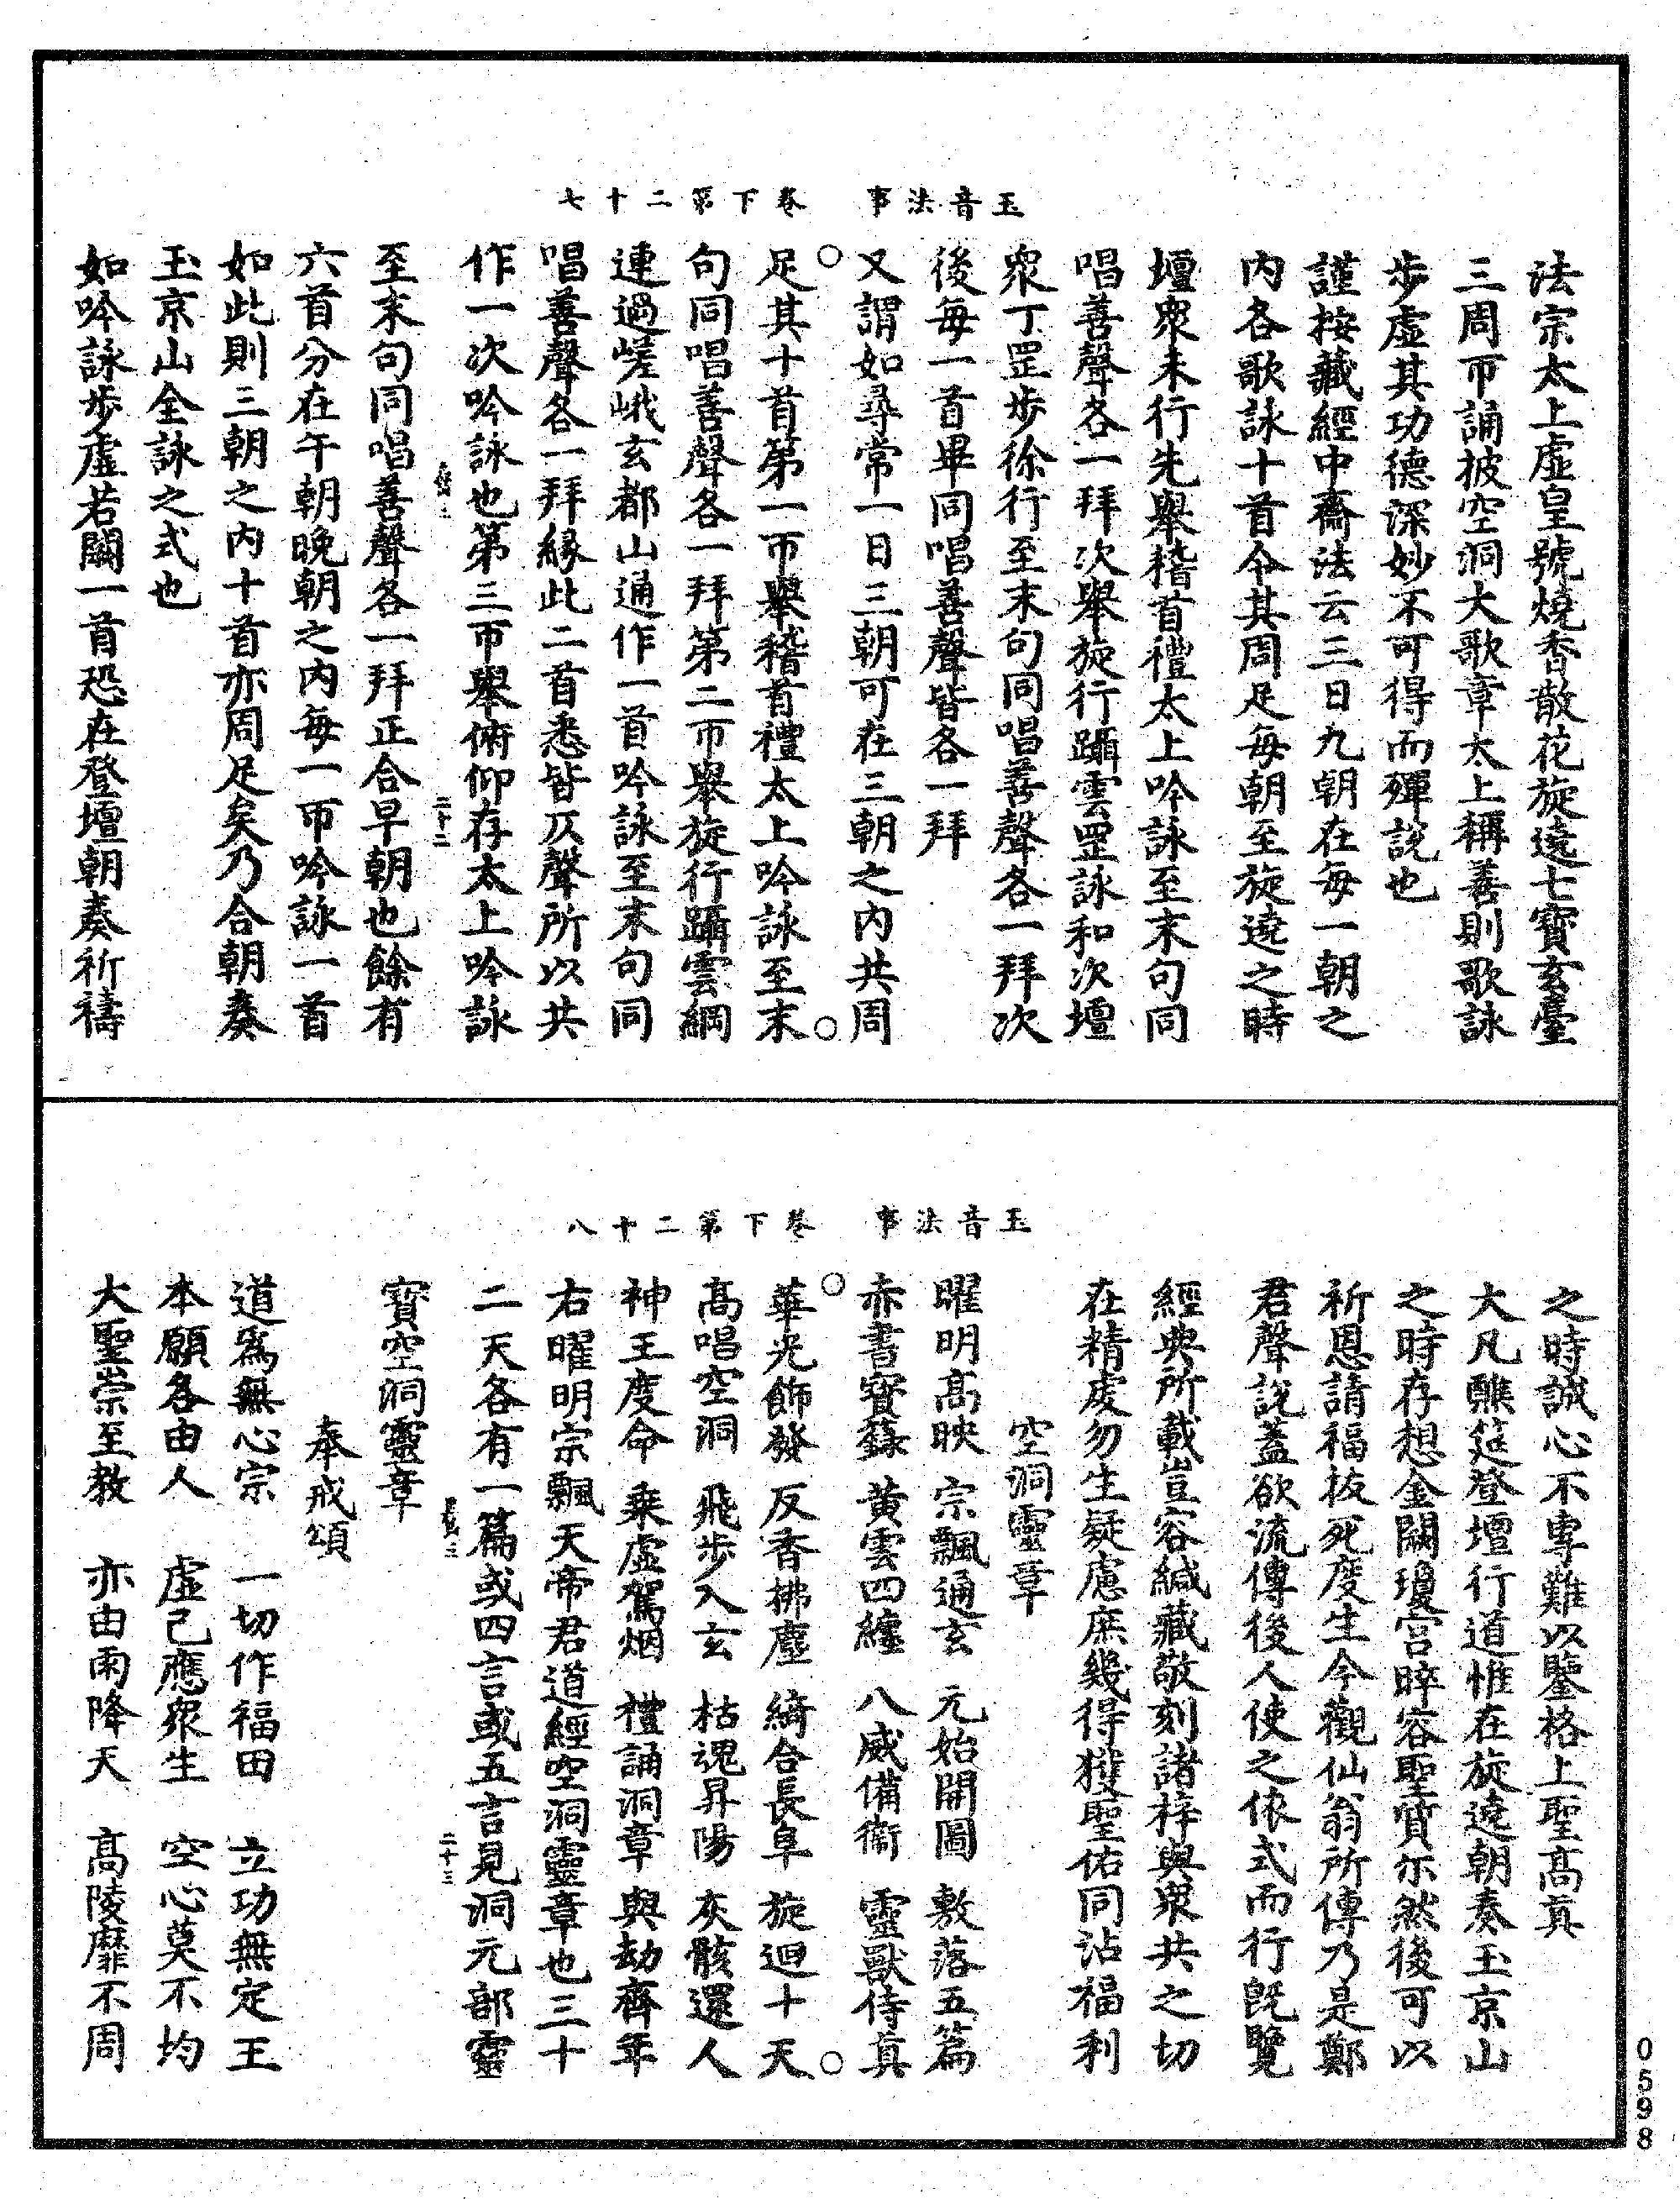 玉音法事　卷下第二十七
法宗太上虛皇號燒香散花旋遶七寶玄臺
三周帀誦披空洞大歌章太上稱善則歌詠
步虛其功德深妙不可得而殫說也
謹按藏經中齋法云三日九朝在每一朝之
內各歌詠十首令其周足每朝至旋遶之時
壇衆未行先舉稽首禮太上吟詠至末句同
唱善聲各一拜次舉旋行躡雲罡詠和次壇
衆丁罡步徐行至末句同唱善聲各一拜次
後每一首畢同唱善聲皆各一拜
又謂如尋常一日三朝可在三朝之內共周
足其十首第一帀舉稽首禮太上吟詠至末
句同唱善聲各一拜第二帀舉旋行躡雲綱
連過嵯峨玄都山通作一首吟詠至末句同
唱善聲各一拜緣此二首悉皆仄聲所以共
作一次吟詠也第三帀舉俯仰存太上吟詠
二十二
至末句同唱善聲各一拜正合早朝也餘有
六首分在午朝晚朝之內每一帀吟詠一首
如此則三朝之內十首亦周足矣乃合朝奏
玉京山全詠之式也
如吟詠步虛若闕一首恐在登壇朝奏祈禱
玉音法事　卷下第二十八
之時誠心不專難以鑒格上聖高真
大凡醮筵登壇行道惟在旋遶朝奏玉京山
之時存想金闕瓊宮晬容聖質尔然後可以
祈恩請福拔死度生今觀仙翁所傳乃是鄭
君聲說蓋欲流傳後人使之依式而行旣覽
經典所載豈容緘藏敬刻諸梓與衆共之切
在精虔勿生疑慮庶幾得獲聖佑同沾福利
空洞靈章
曜明高映　宗飄通玄　元始開圖　敷落五篇
赤書寶籙　黃雲四纏　八威備衞　靈獸侍真
華光飾發　反香拂塵　綺合長阜　旋迴十天
高唱空洞　飛步入玄　枯魂昇陽　灰骸還人
神王度命　乘虛駕烟　禮誦洞章　與劫齊年
右曜明宗飄天帝君道經空洞靈章也三十
二天各有一篇或四言或五言見洞元部靈
二十三
寶空洞靈章
奉戒頌
道爲無心宗　一切作福田　立功無定王
本願各由人　虛己應衆生　空心莫不均
大聖崇至教　亦由雨降天　高陵靡不周
0598